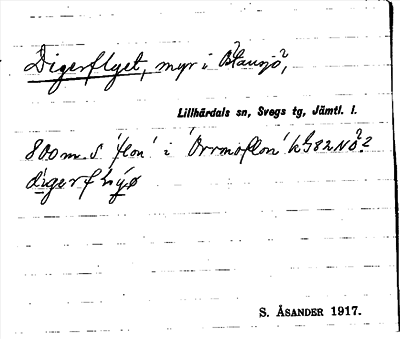 Digerflyet, myr i
Lillhärdals sn, Svegs tg, Jämtl. l.
800 m. S 'flon' i 'Orrmoflon'
S. ÅSANDER 1917.